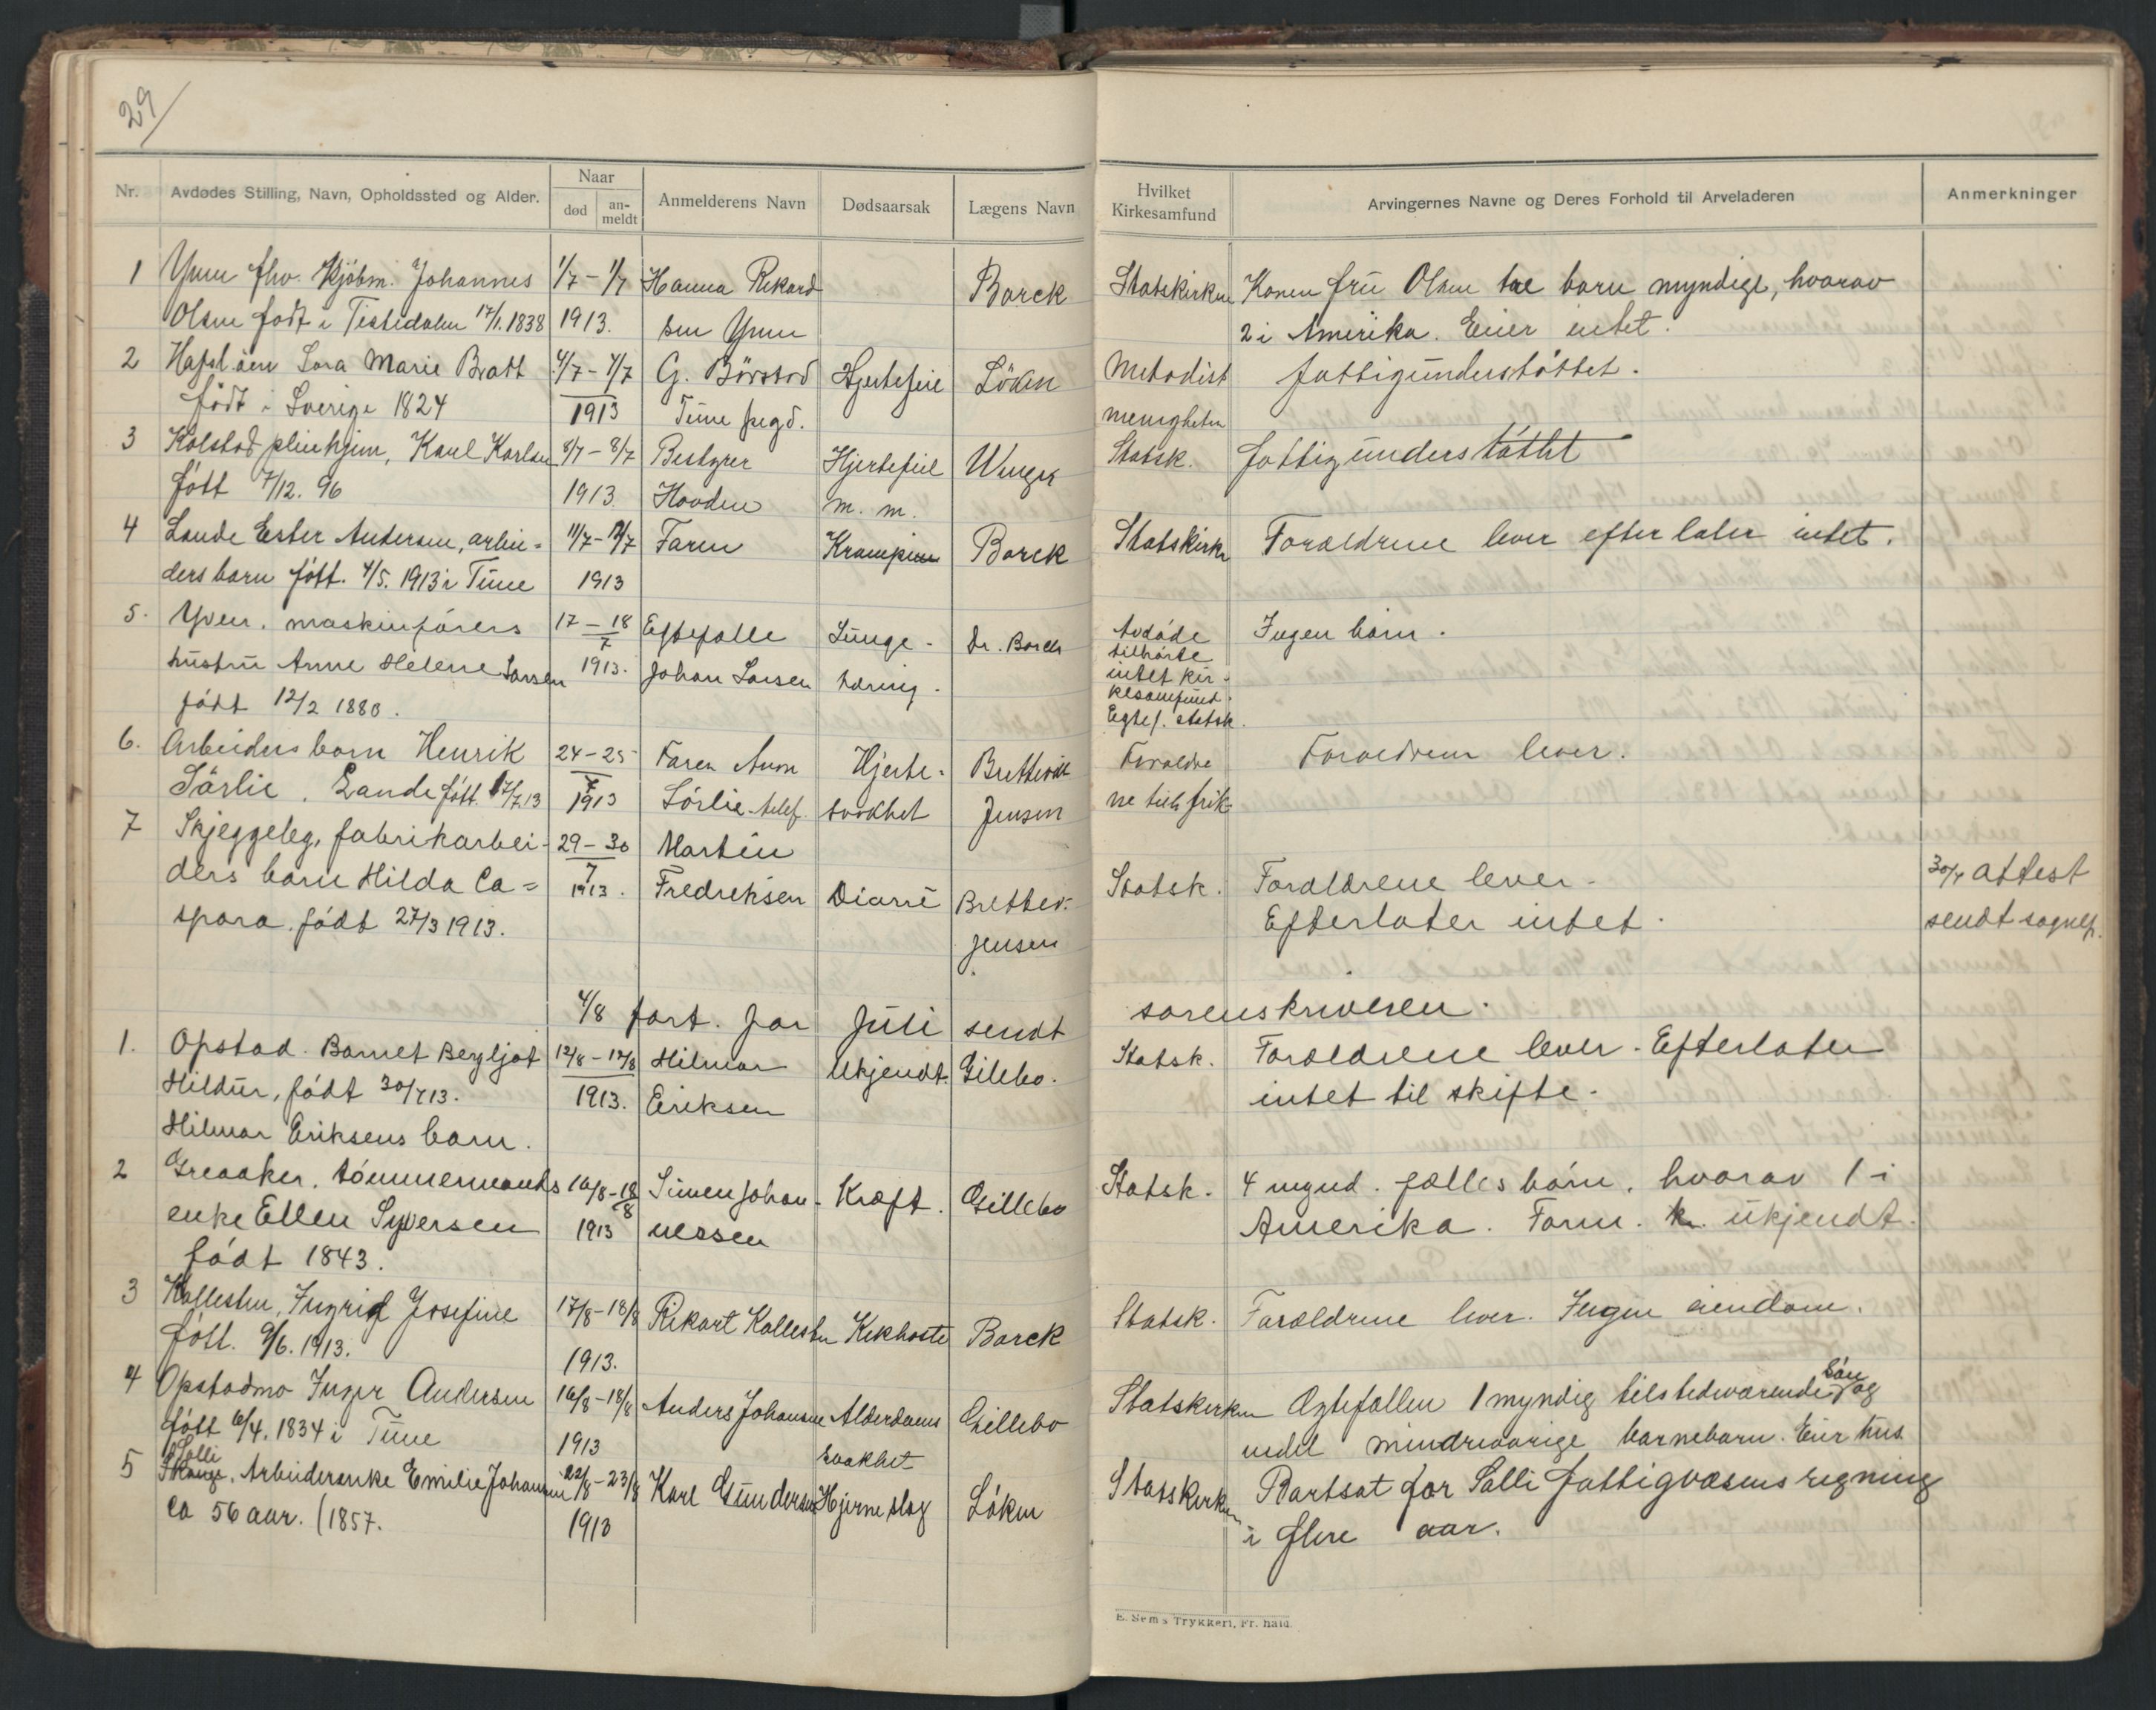 29
Nr.
Avdødes Stilling, Navn, Opholdssted og Alder.
Naar
død
an-
meldt
Anmelderens Navn
Dødsaarsak
Lægens Navn
Hvilket
Kirkesamfund
Arvingernes Navne og Deres Forhold til Arveladeren
Anmerkninger
1 Yven fhv. Kjøbm. Johannes 1/7 - 1/7 Hanna Rikard Borck Statskirken Konen fru Olsen tre barn myndige, hvorav
Olsen født i Tistedalen 17/1. 1838 1913. sen Yven 2 i Amerika. Eier intet.
2 Lora Marie Bratt 4/7 - 7/7 G. Börstad Hjertefeil Löken Metodist fattigunderstøttet.
født i Sverige 1824 1913 Tune menigheten
3 Kolstad pleiehjem, Karl Karlsen 8/7 - 8/7 Bestyrer Hjertefeil Wenger Statsk. fattigunderstøttet
født 7/12. 96 1913 Hovden m. m.
4 Lande Ester Andersen, arbei= 11/7 - 12/7 Faren Krampe Borck Statskirken Forældrene lever efterlater intet.
ders barn født. 4/5. 1913 i Tune 1913
5. Yven. maskinførers 17 - 18/7 Egtefalle Lunge- Dr. Borck Avdøde Ingen barn.
hustru Anne Helene Larsen 1913. Johan Larsen tæring. tilhørte
intet kir-
født 12/2 1880. kesamfund.
Egtef. statsk.
6. Arbeiders barn Henrik 24 - 25 Faren Aron Hjerte- Bretteville Foraldre Foraldrene lever.
Sørlie. Lande født. 17/7.13 7 1913 Sørlie telef. svakhet Jensen ne tilh frik-
7 Skjeggeleg, fabrikarbei- 29 - 30 Martin
ders barn Hilda Ca= 7 1913. Fredriksen Diarré Brettev. Statsk. Foraldrene lever. 30/7 attest
spara. født 27/3 1913. Jensen Efterlater intet. sendt sognep.
4/8 fort. for Juli sendt sorenskriveren.
1. Opstad. Barnet Bergljot 12/8 - 12/8 Hilmar Ukjendt. Gillebo. Statsk. Foraldrene lever. Efterlater
Hildur, født 30/7 13. 1913. Eriksen intet til skifte.
Hilmar Eriksens barn.
2 Greaaker. tømmermands 16/8 - 18/8 Simen Johan- Kræft. Gillebo Statsk. 4 mynd. fælles børn, hvorav 1 i
enke Ellen Syversen 1913 nessen Amerika. Form. ukjendt.
født 1843.
3 Kallesten, Ingrid Josefine 17/8 - 18/8 Rikart Kallesten Kikhoste Borck Statsk. Foraldrene lever. Ingen eiendom.
født. 9/6. 1913. 1913.
4 Opstadmo Inger Andersen 16/8 - 18/8 Anders Johansen Alderdoms Gillebo Statskirken Ægtefallen 1 myndig tilstedeværende søn og
født 6/4. 1834 i Tune 1913 svakhet mindreaarige barnebarn. Eier hus
5 Solli Arbeiderenke Emilie Johansen 22/8 - 23/8 Karl Gundersen Hjerneslag Løken Statskirken Bortsat for Solli fattigvæsens regning
ca 56 aar. (1857. 1913 i flere aar.
E. Sem's Trykkeri, Fr.hald.